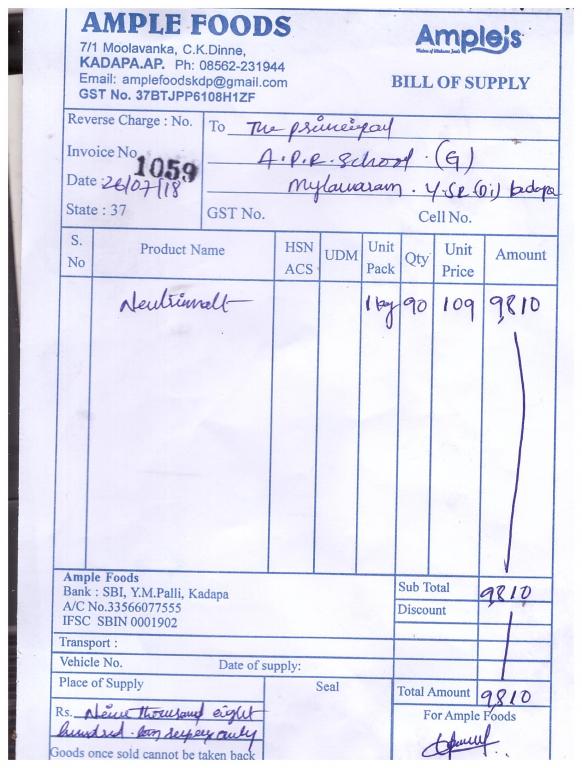 AMPLE FOODS
7/1 Moolavanka, C.K.Dinne,
KADAPA.AP. Ph: 08562-231944
Email: amplefoodskdp@gmail.com
GST No. 37BTJPP6108H1ZF
Ample's
BILL OF SUPPLY
Reverse Charge : No.
Invoice No. 1059
Date : 26/07/18
State : 37
To The principal
A.P.R. School. (G)
Mylavaram. Y.SR (Di) kadapa
GST No. Cell No.
S. No Product Name HSN ACS UDM Unit Pack Qty Unit Price Amount
Neutrimalt 1 kg 90 109 9,810
Ample Foods
Bank : SBI, Y.M.Palli, Kadapa
A/C No.33566077555
IFSC SBIN 0001902
Sub Total 9,810
Discount
Transport :
Vehicle No. Date of supply:
Place of Supply
Seal
Total Amount 9,810
Rs. Nine thousand eight
hundred ten rupees only
For Ample Foods
Goods once sold cannot be taken back